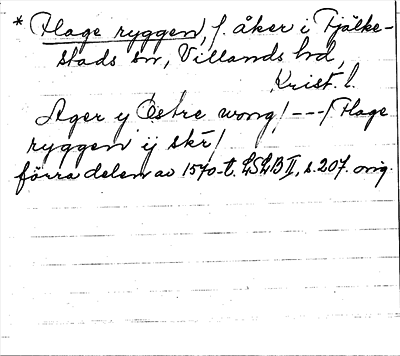 * Hage ryggen, f. åker i Fjälke-
stads sn, Villands hd,
Krist. l.
Ager y Östre wong / --- / Hage
ryggen ij skr /
förra delen av 1570-t. LSLB II, s. 207. orig.